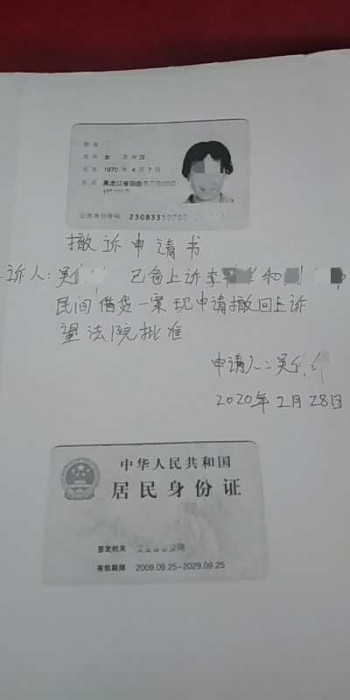 姓名
性别 女 民族 汉
出生 1970 年 4 月 7 日
住址 黑龙江省
公民身份号码
撤诉申请书
上诉人:吴 已备上诉李 和
民间借贷一案现申请撤回上诉
望法院批准
申请人:吴
2020年2月28日
中华人民共和国
居民身份证
签发机关
有效期限 2009.09.25-2029.09.25